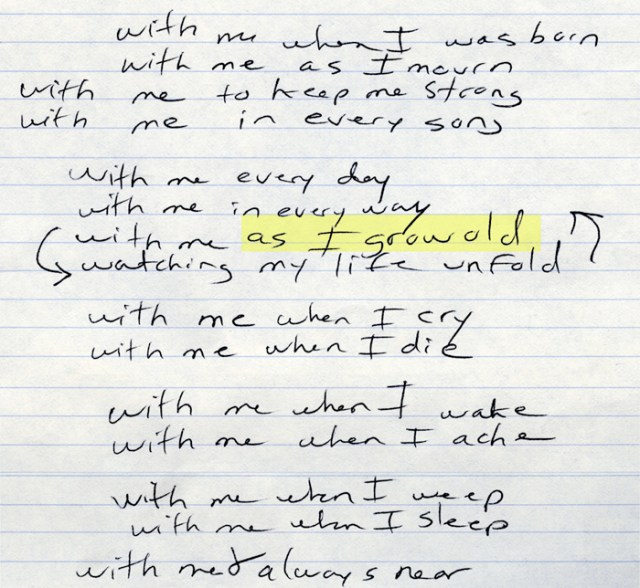 with me when I was born
with me as I mourn
with me to keep me strong
with me in every song
with me every day
with me in every way
with me as I grow old
watching my life unfold
with me when I cry
with me when I die
with me when I wake
with me when I ache
with me when I weep
with me when I sleep
with me & always near